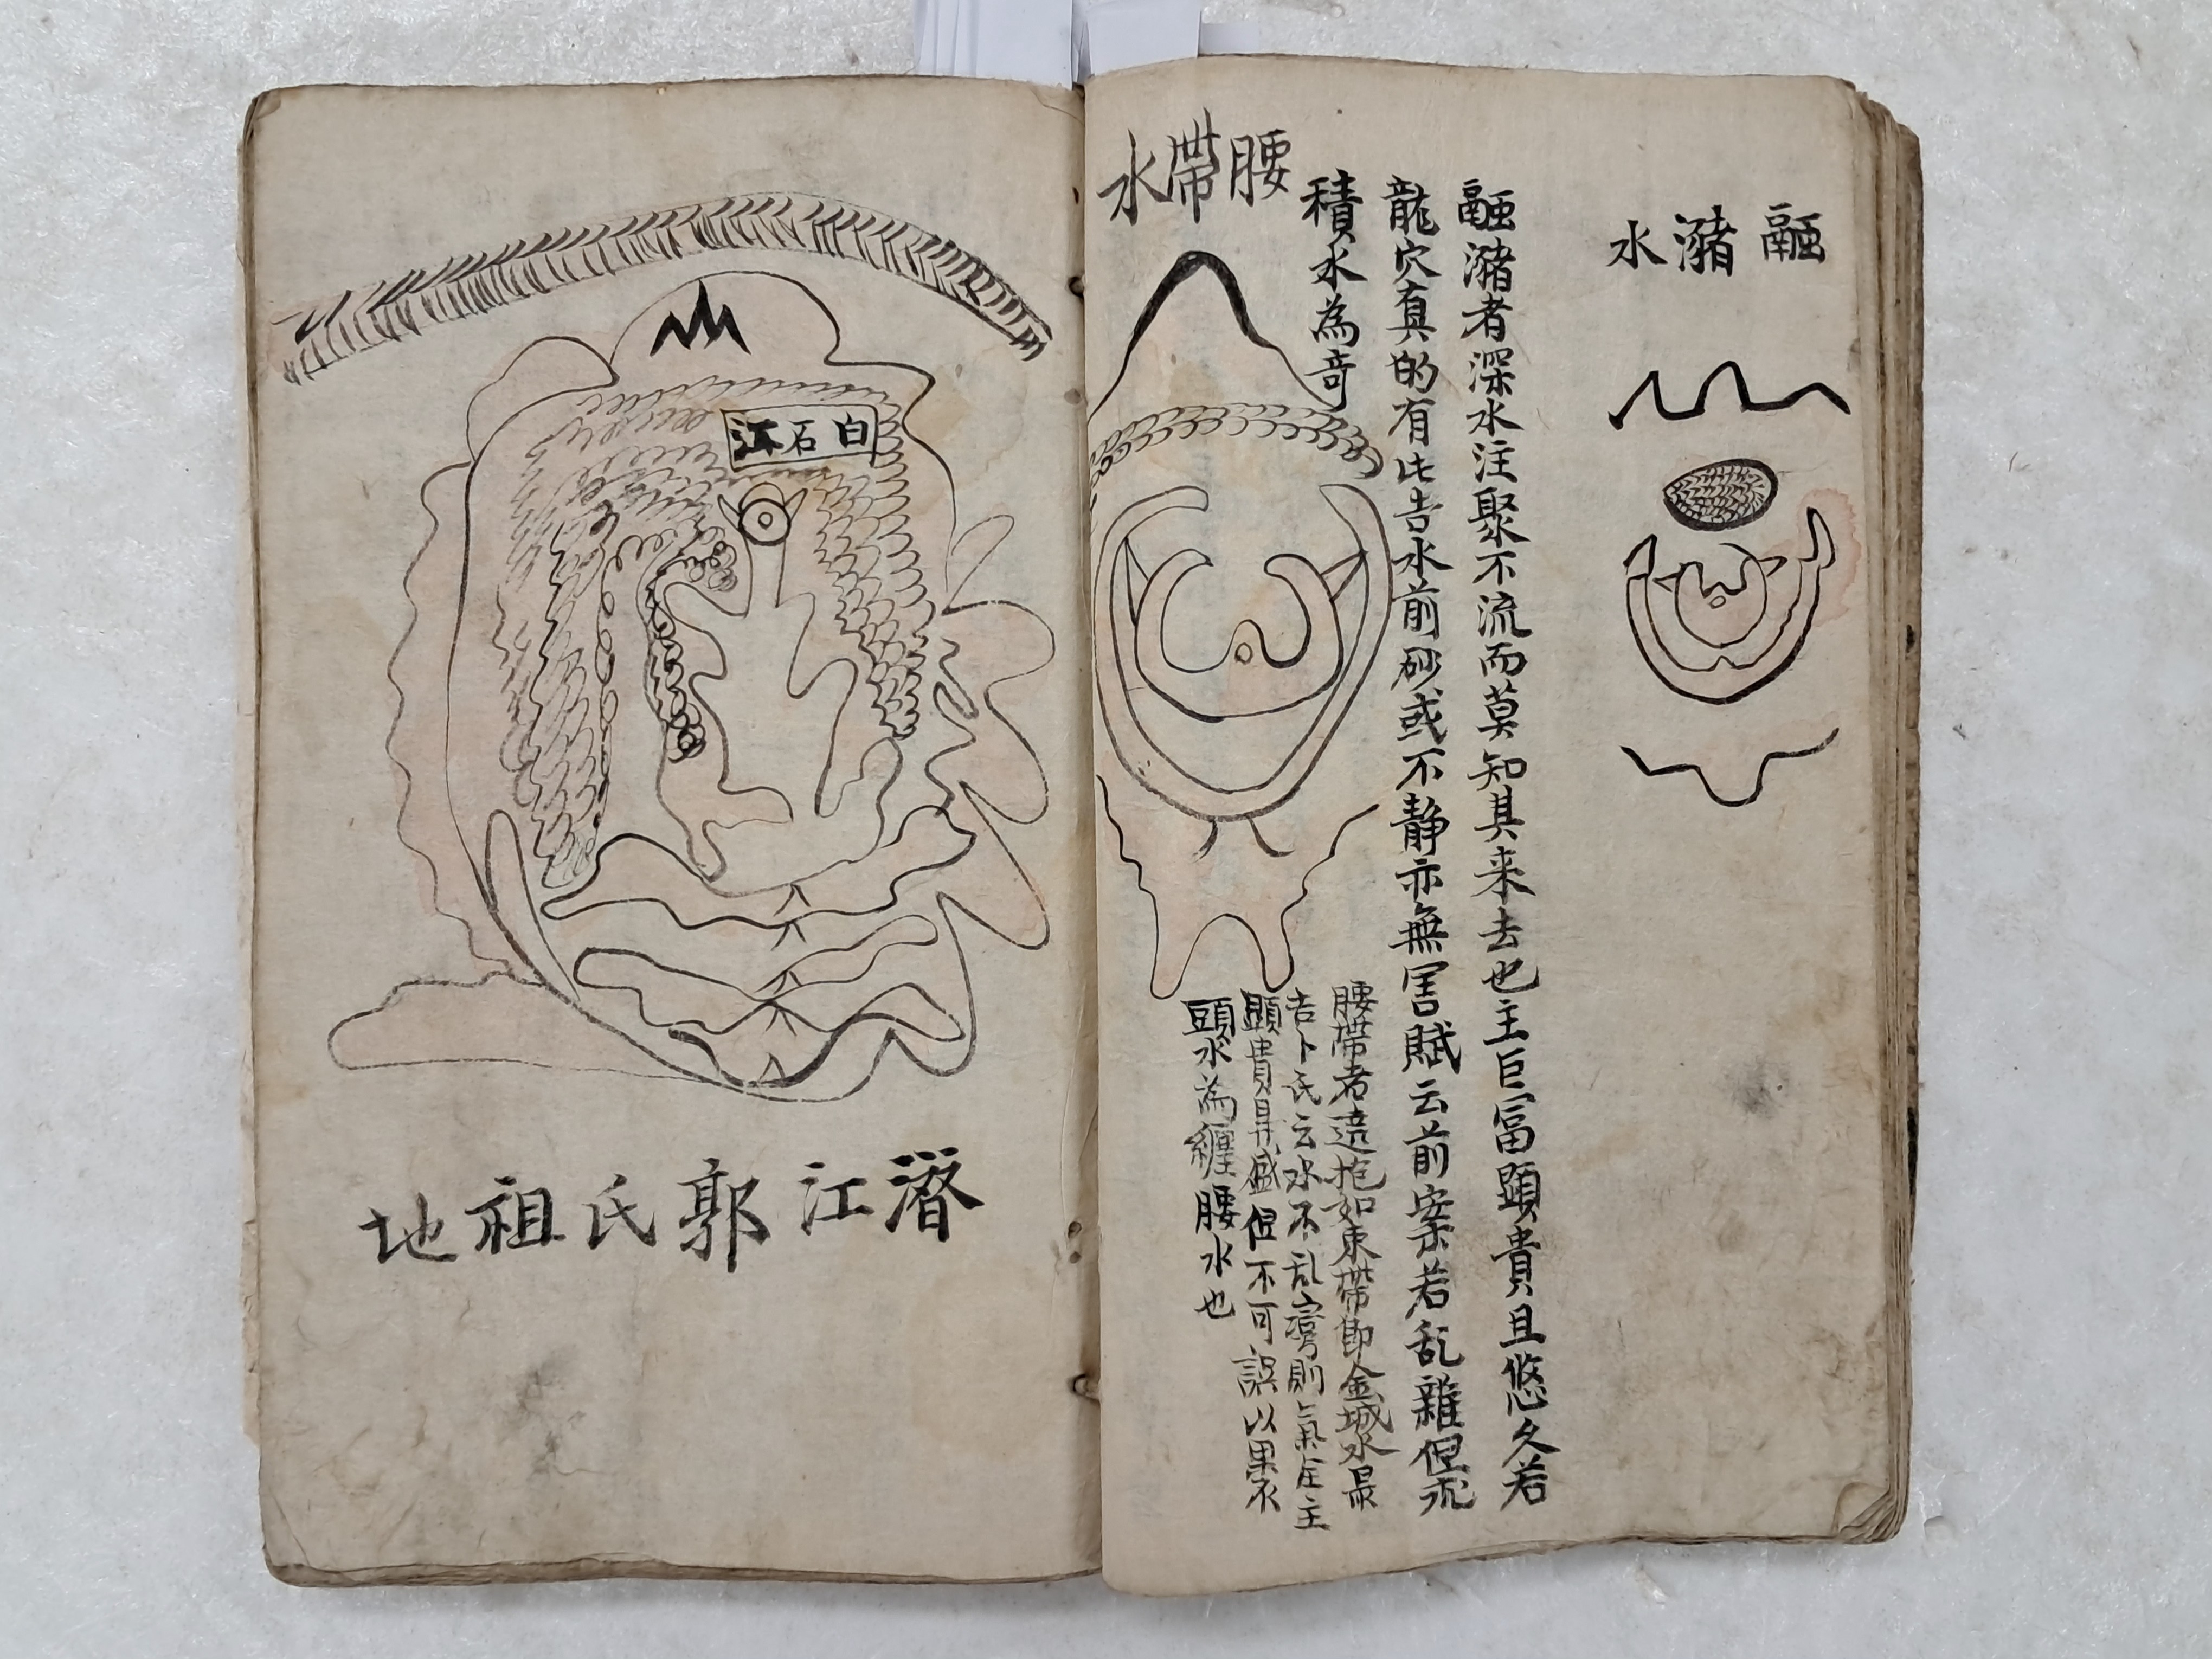 融瀦水
融瀦者深水注聚不流而莫知其来去也主巨冨顕貴且悠久若
龍穴真的有此吉水前砂或不静亦無害賦云前案若乱雜但求
積水為竒
腰帶水
腰帶者遶抱如束帶即金城水最
吉卜氏云水不乱灣則氣全主
顕貴昌盛但不可誤以裹
頭水為纏腰水也
白石江
潛江郭氏祖地